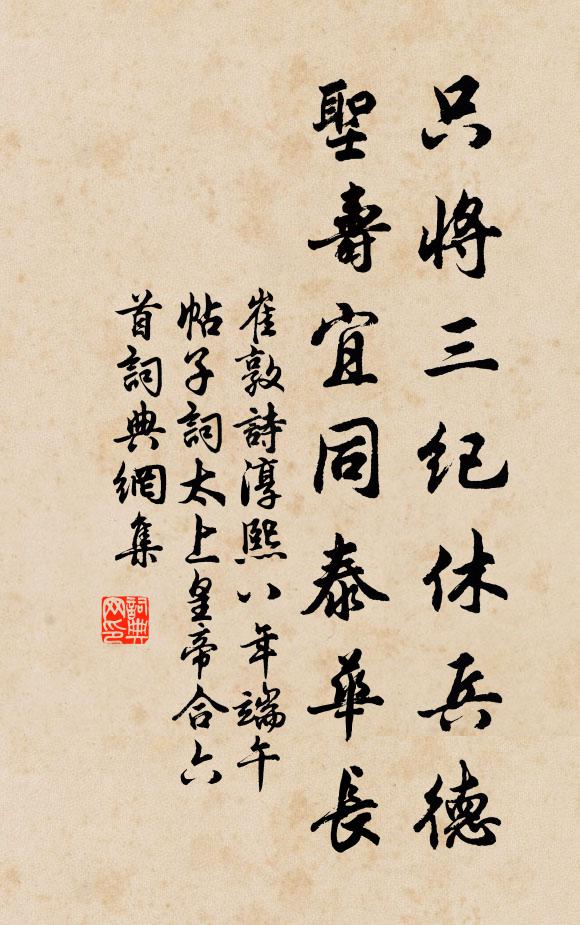 只將三纪休兵德
聖壽宜同泰華長
崔敦詩淳熙八年端午
帖子詞太上皇帝合六
首詞典網集
詞典
网印